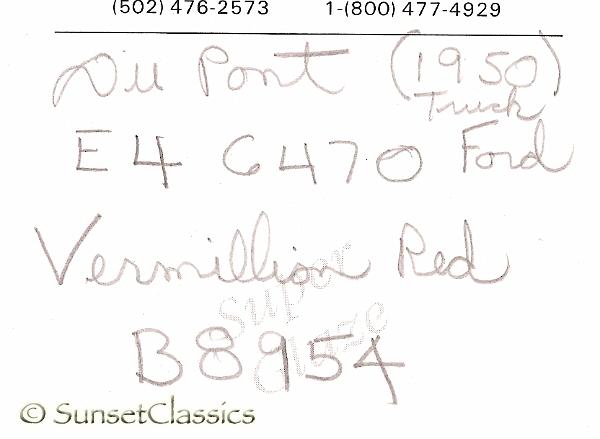 (502) 476-2573 1-(800) 477-4929
Du Pont (1950)
Truck
E4 6470 Ford
Vermillion Red
Super
Glaze
B8954
© SunsetClassics